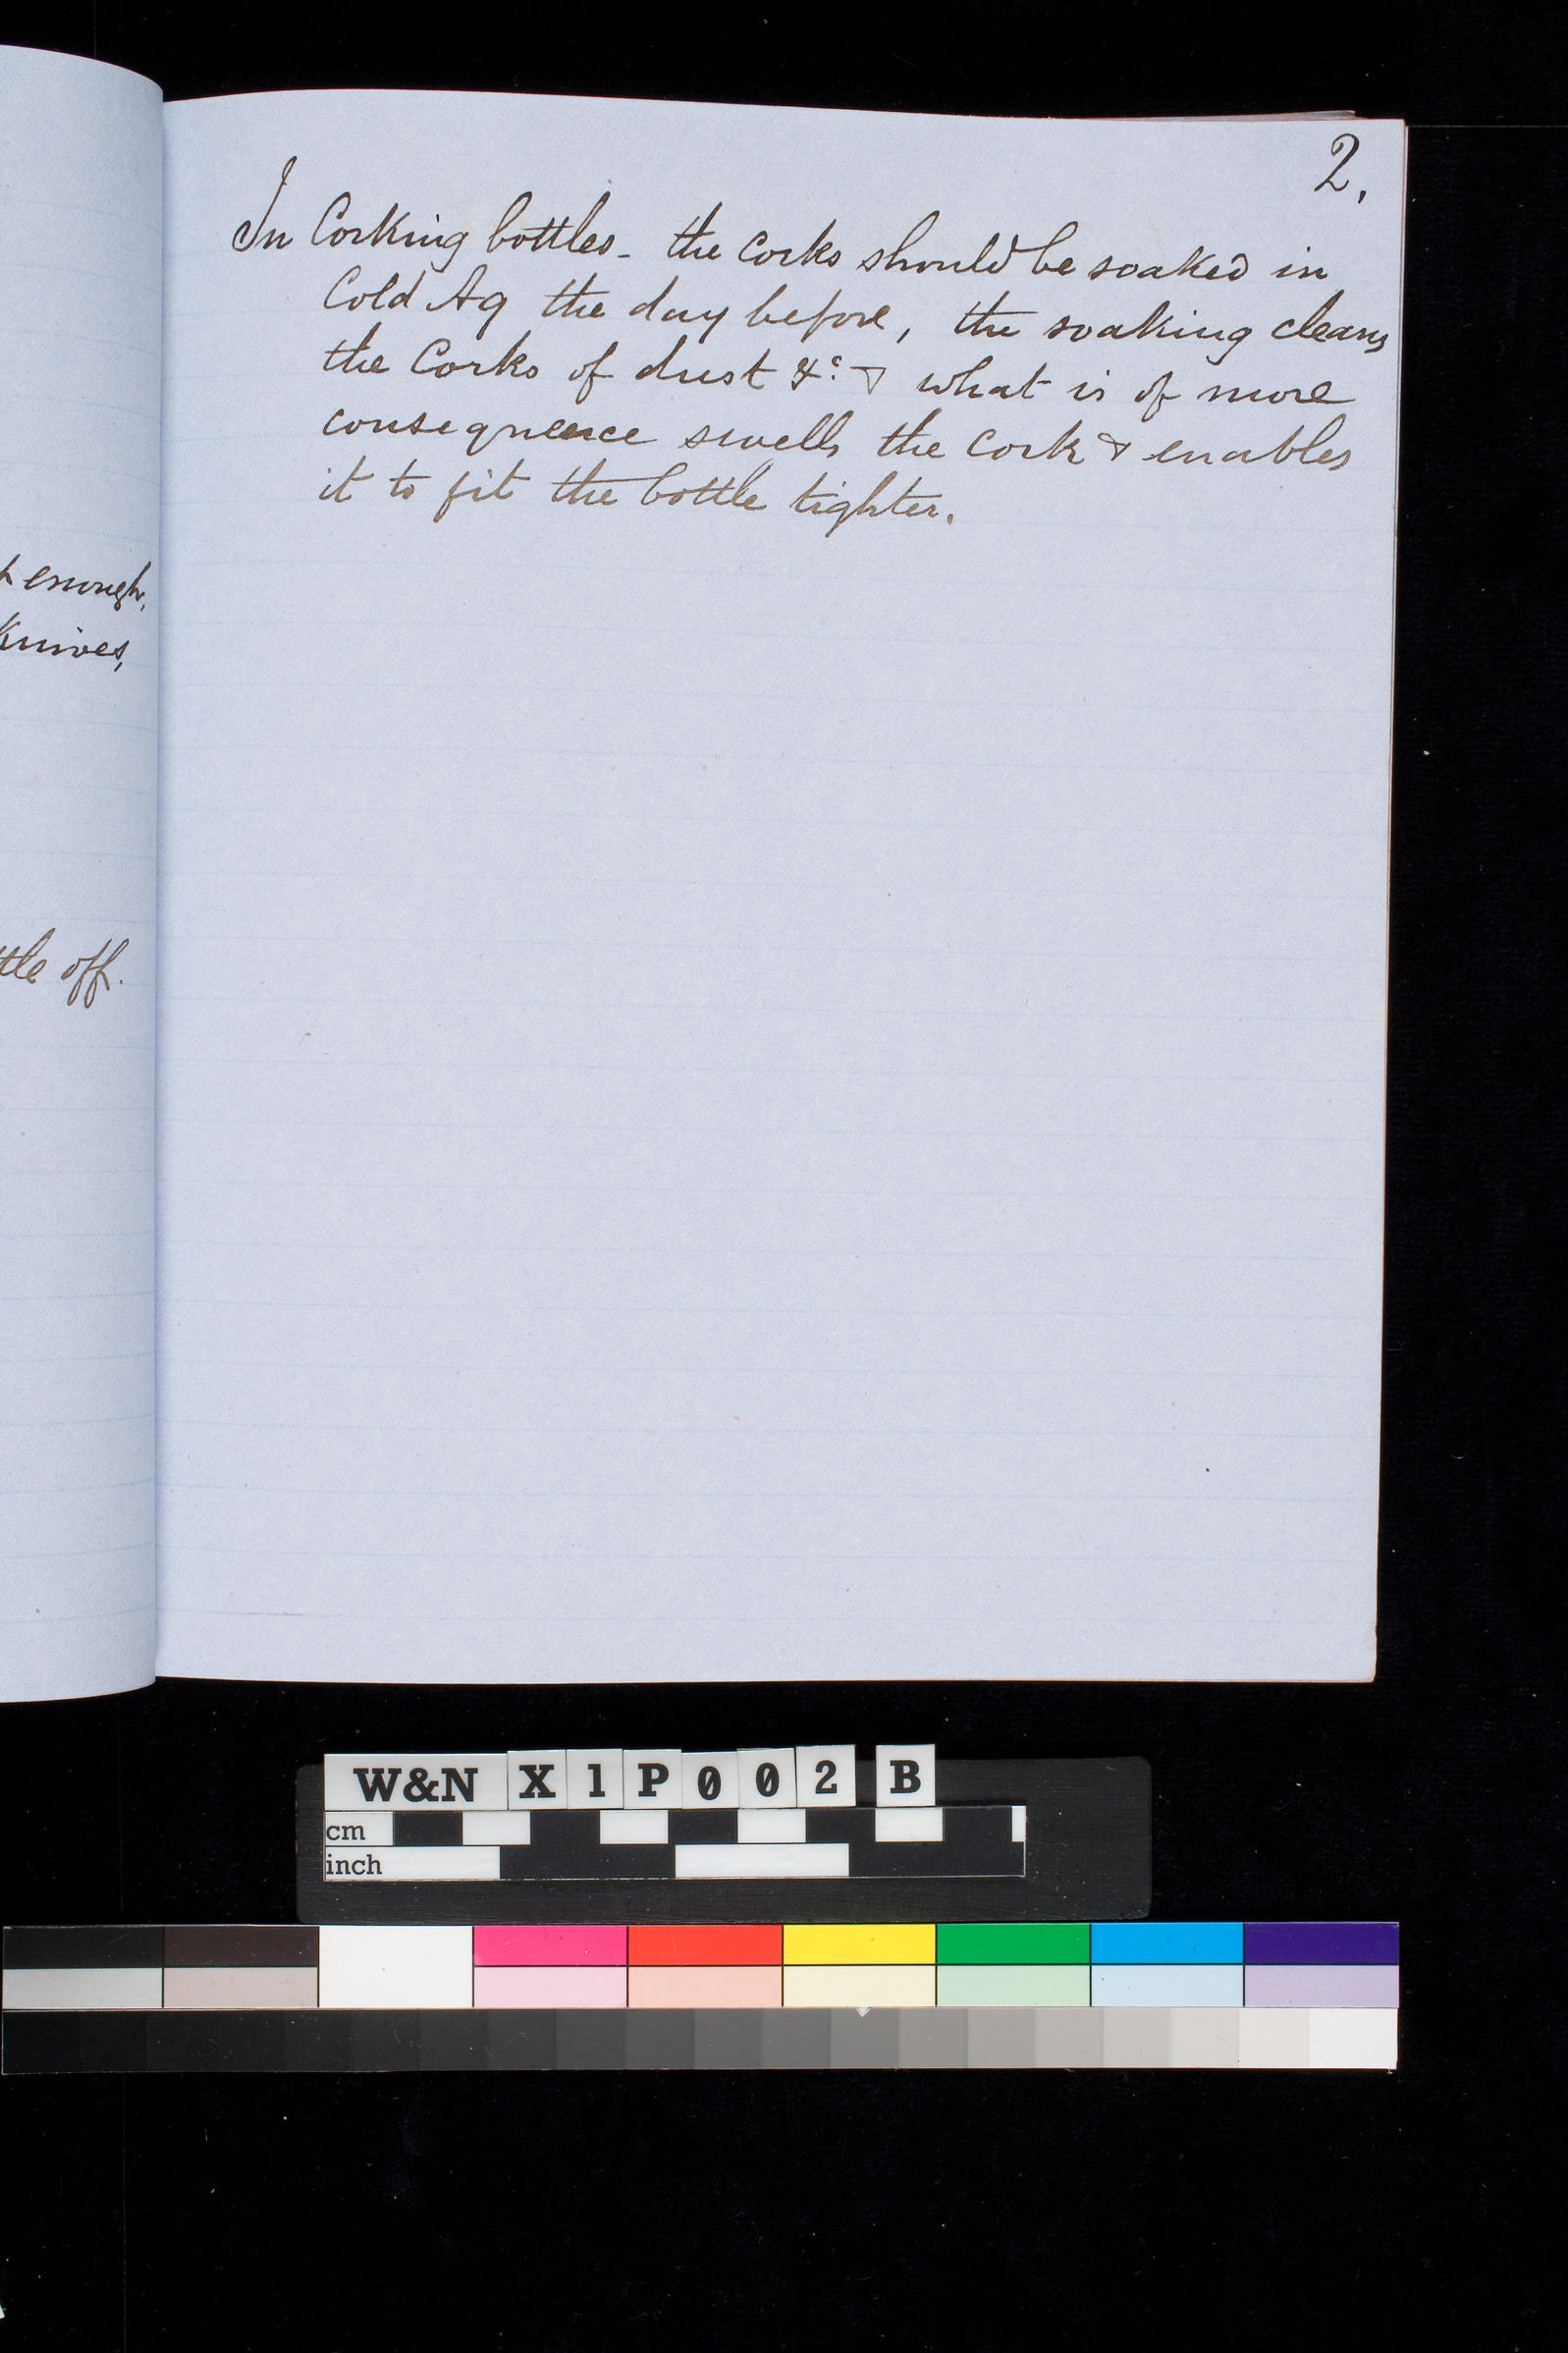 2.
In Corking bottles - the corks should be soaked in
Cold Aq the day before, the soaking cleans
the Corks of dust &c. & what is of more
consequence swells the cork & enables
it to fit the bottle tighter.
enough,
Knives,
off.
W&N X1P002 B
cm
inch